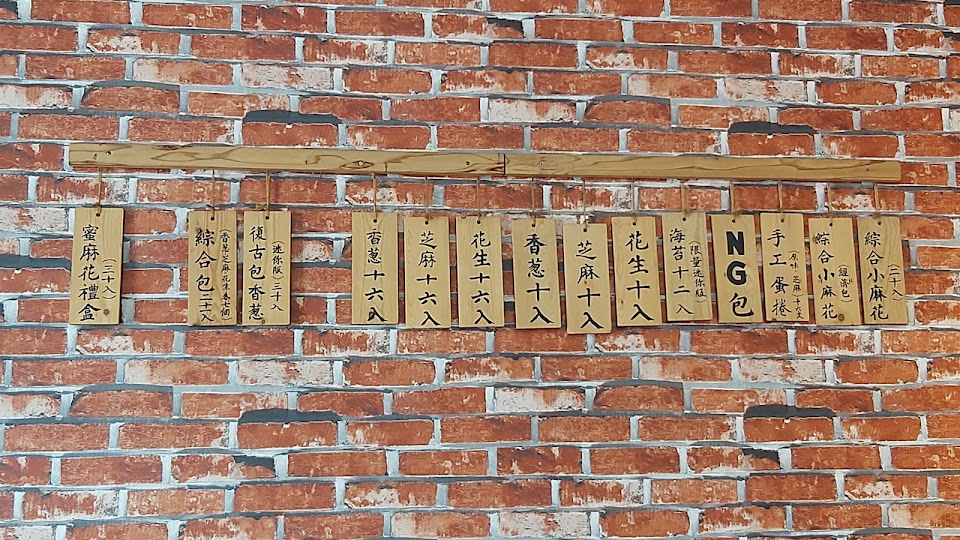 綜合小麻花
(二十入)
綜合小麻花
(經濟包)
手工蛋捲
原味 芝麻
NG包
海苔十二入
(限量迷你版)
花生十入
芝麻十入
香蔥十入
花生十六入
芝麻十六入
香蔥十六入
復古包香蔥
(迷你版)三十入
綜合包二十入
(香蔥芝麻花生各七個)
蜜麻花禮盒
(三十入)